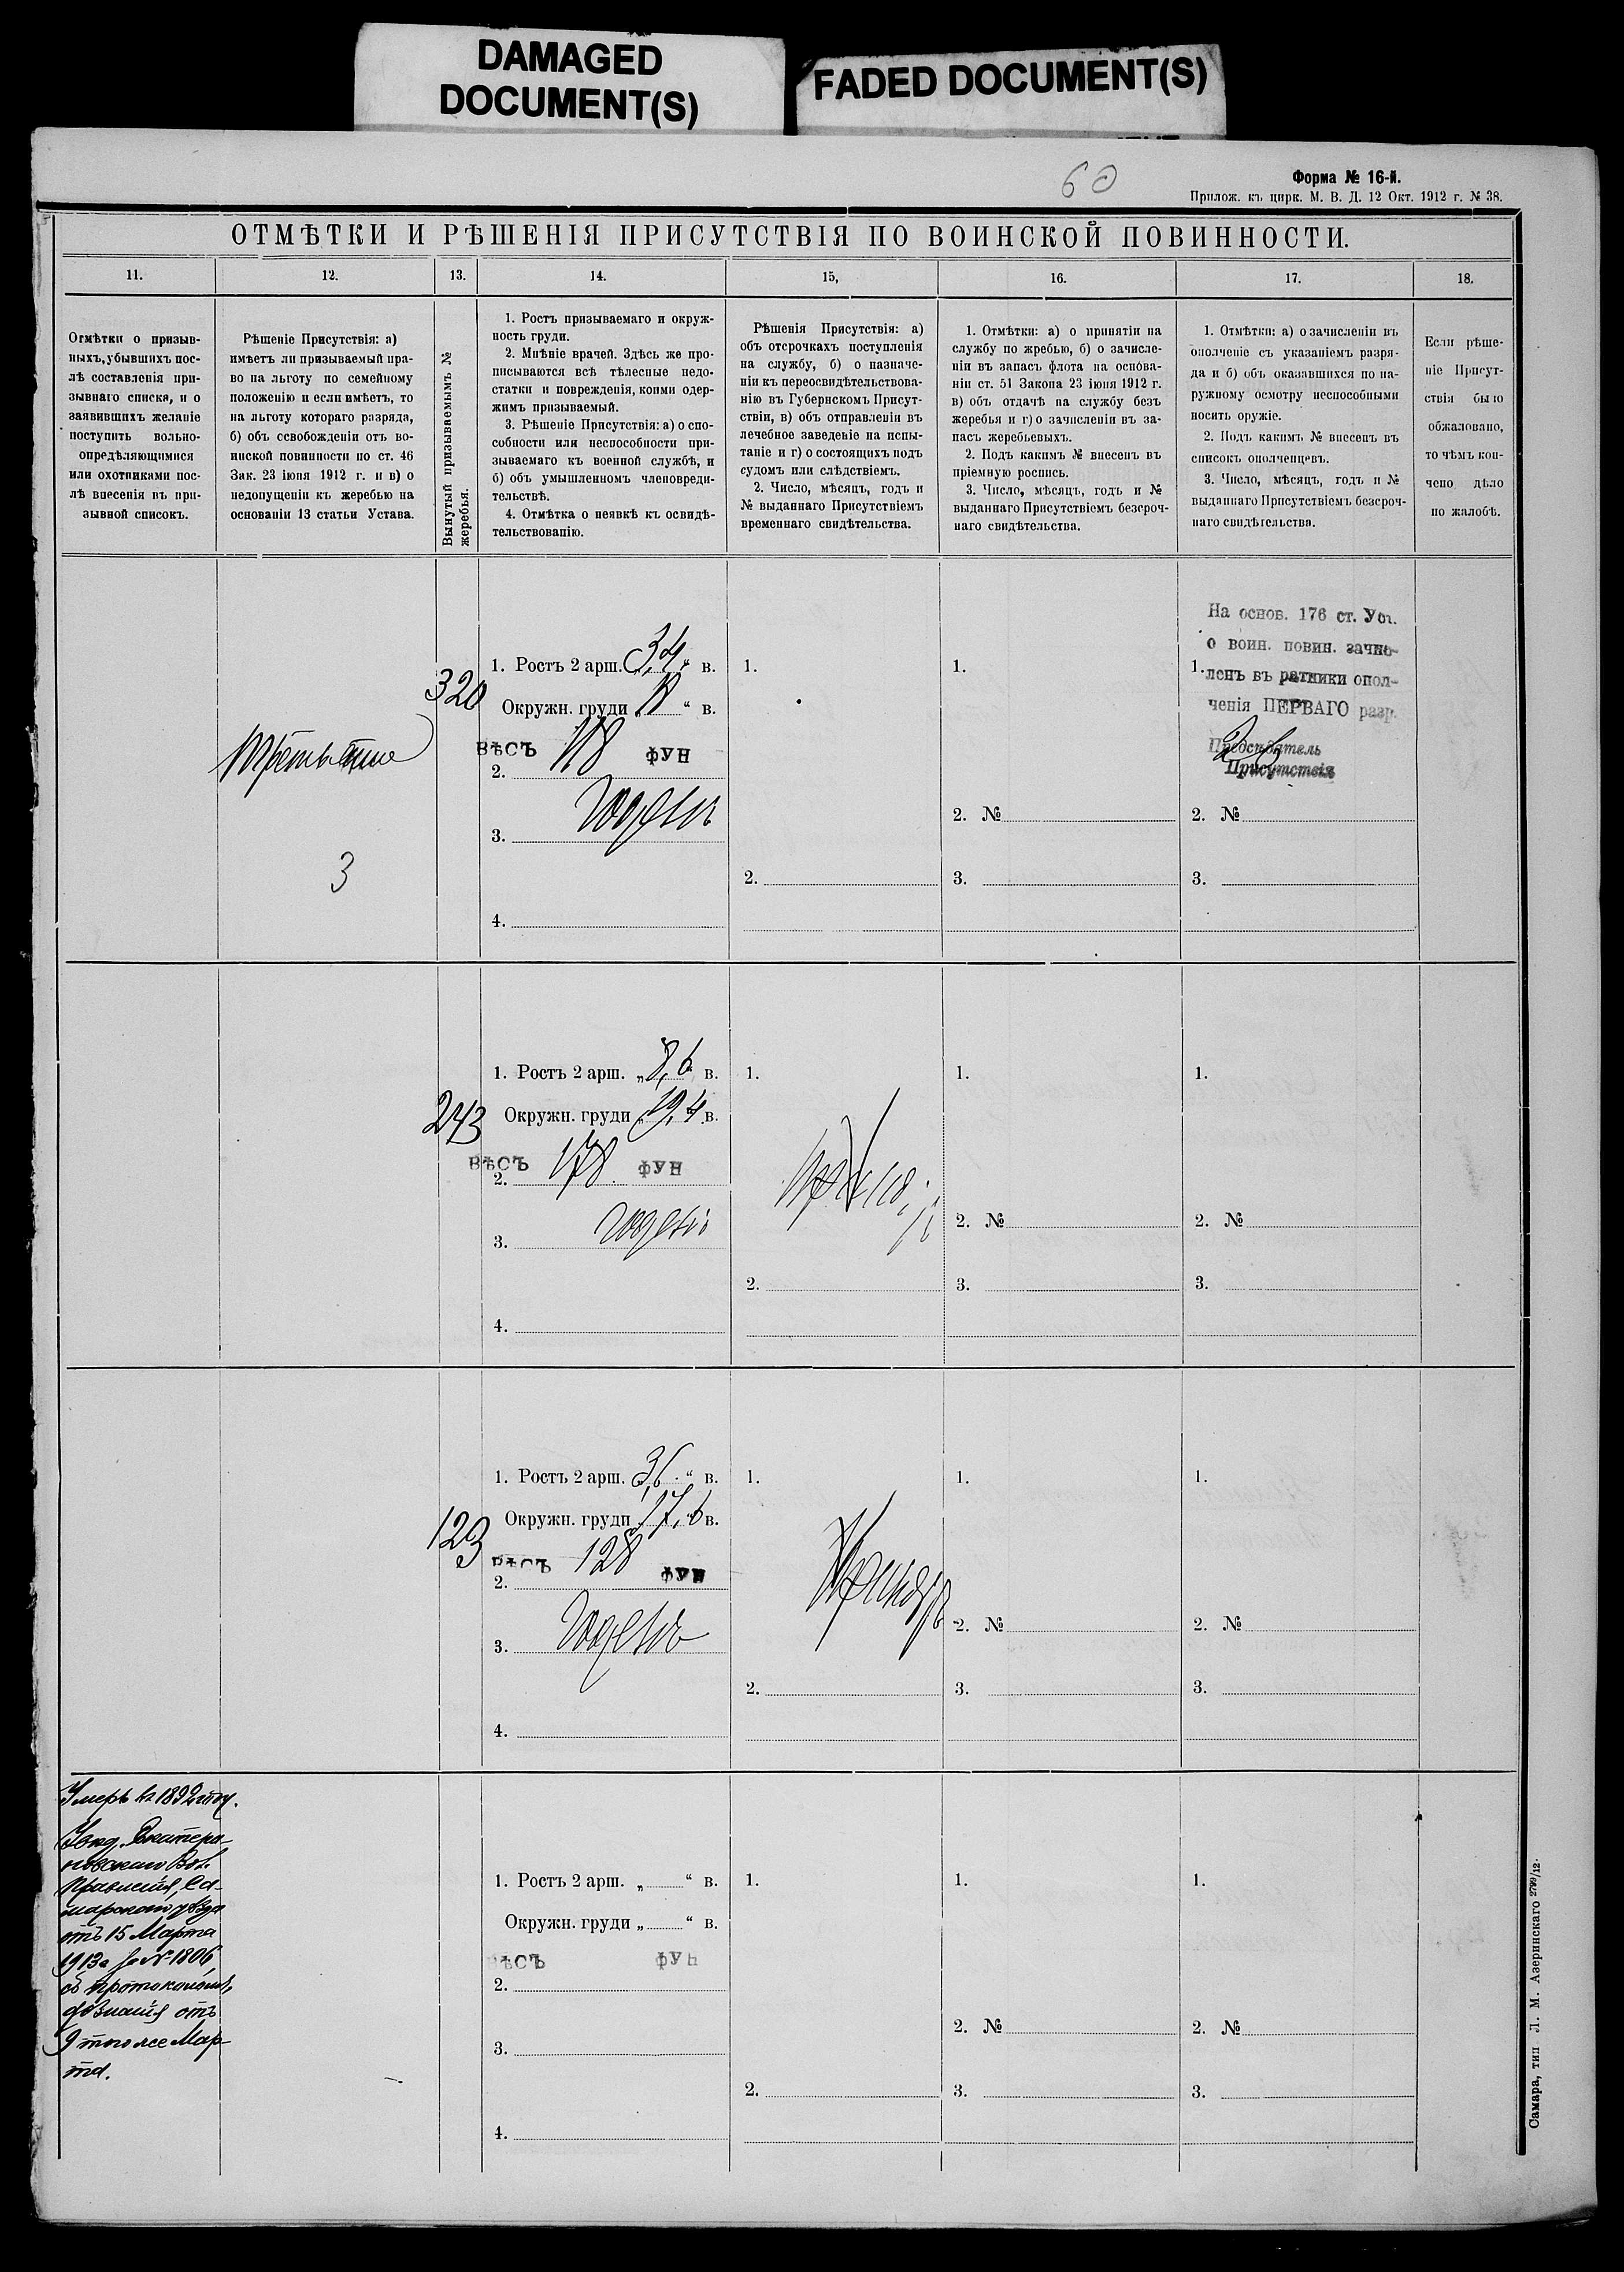 DAMAGED
DOCUMENT(S)
FADED DOCUMENT(S)
60
Форма № 16-й.
Прилож. къ цирк. М. В. Д. 12 Окт. 1912 г. № 38.
ОТМѢТКИ И РѢШЕНІЯ ПРИСУТСТВІЯ ПО ВОИНСКОЙ ПОВИННОСТИ.
11.
12.
13.
14.
15.
16.
17.
18.
Отмѣтки о призыв-
ныхъ, убывшихъ пос-
лѣ составленія при-
зывнаго списка, и о
заявившихъ желаніе
поступить вольно-
опредѣляющимися
или охотниками пос-
лѣ внесенія въ при-
зывной списокъ.
Рѣшеніе Присутствія: а)
имѣетъ ли призываемый пра-
во на льготу по семейному
положенію и если имѣетъ, то
на льготу котораго разряда,
б) объ освобожденіи отъ во-
инской повинности по ст. 46
Зак. 23 іюня 1912 г. и в) о
недопущеніи къ жеребью на
основаніи 13 статьи Устава.
Вынутый призываемымъ №
жеребья.
1. Ростъ призываемаго и окруж-
ность груди.
2. Мнѣніе врачей. Здѣсь же про-
писываются всѣ тѣлесные недо-
статки и поврежденія, коими одер-
жимъ призываемый.
3. Рѣшеніе Присутствія: а) о спо-
собности или неспособности при-
зываемаго къ военной службѣ, и
б) объ умышленномъ членовреди-
тельствѣ.
4. Отмѣтка о неявкѣ къ освидѣ-
тельствованію.
Рѣшенія Присутствія: а)
объ отсрочкахъ поступленія
на службу, б) о назначе-
ніи къ переосвидѣтельствова-
нію въ Губернскомъ Присут-
ствіи, в) объ отправленіи въ
лечебное заведеніе на испы-
таніе и г) о состоящихъ подъ
судомъ или слѣдствіемъ.
2. Число, мѣсяцъ, годъ и
№ выданнаго Присутствіемъ
временнаго свидѣтельства.
1. Отмѣтки: а) о принятіи на
службу по жребью, б) о зачисле-
ніи въ запасъ флота на основа-
ніи ст. 51 Закона 23 іюня 1912 г.
в) объ отдачѣ на службу безъ
жеребья и г) о зачисленіи въ за-
пасъ жеребьевыхъ.
2. Подъ какимъ № внесенъ въ
пріемную роспись.
3. Число, мѣсяцъ, годъ и №
выданнаго Присутствіемъ безсроч-
наго свидѣтельства.
1. Отмѣтки: а) о зачисленіи въ
ополченіе съ указаніемъ разря-
да и б) объ оказавшихся по на-
ружному осмотру неспособными
носить оружіе.
2. Подъ какимъ № внесенъ въ
списокъ ополченцевъ.
3. Число, мѣсяцъ, годъ и №
выданнаго Присутствіемъ безсроч-
наго свидѣтельства.
Если рѣше-
ніе Присут-
ствія было
обжаловано,
то чѣмъ кон-
чено дѣло
по жалобѣ.
320
3
1. Ростъ 2 арш. 3,4 " в.
Окружн. груди 18 " в.
ВѢСЪ 118 ФУН
2.
3. Годенъ
4.
1.
2.
1.
2. №
3.
На основ. 176 ст. Уст.
о воин. повин. зачис-
1. ленъ въ ратники опол-
ченія ПЕРВАГО разр.
Предсѣдатель
Присутствія
2. №
3.
243
1. Ростъ 2 арш. „ 8,6 в.
Окружн. груди 19,4 в.
ВѢСЪ 178 ФУН
2.
3. Годенъ
4.
1.
2.
1.
2. №
3.
1.
2. №
3.
123
1. Ростъ 2 арш. 3,6 " в.
Окружн. груди 17,6 в.
ВѢСЪ 128 ФУН
2.
3. Годенъ
4.
1.
2.
1.
2. №
3.
1.
2. №
3.
Умеръ въ 1892 году.
Увед. Екатери-
новскаго Вол.
Правленія, Са-
марскаго уѣзда
отъ 15 Марта
1913 г. за № 1806,
съ протоколомъ
дознанія отъ
9 того же Мар-
та.
1. Ростъ 2 арш. „ " в.
Окружн. груди „ " в.
ВѢСЪ ФУН
2.
3.
4.
1.
2.
1.
2. №
3.
1.
2. №
3.
Самара, тип Л. М. Азеринскаго 2799/12.